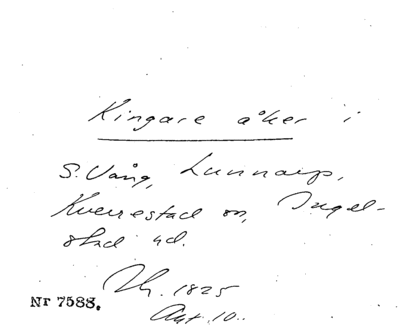 Kingare åker i
S. Vång, Lunnarp,
Kverrestad sn, Ingel-
stad hd.
Lh. 1825
Akt. 10.
Nr 7588.